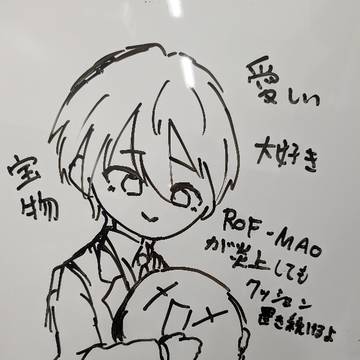 愛しい
大好き
宝物
ROF-MAO
が炎上しても
クッション
置き続けるよ